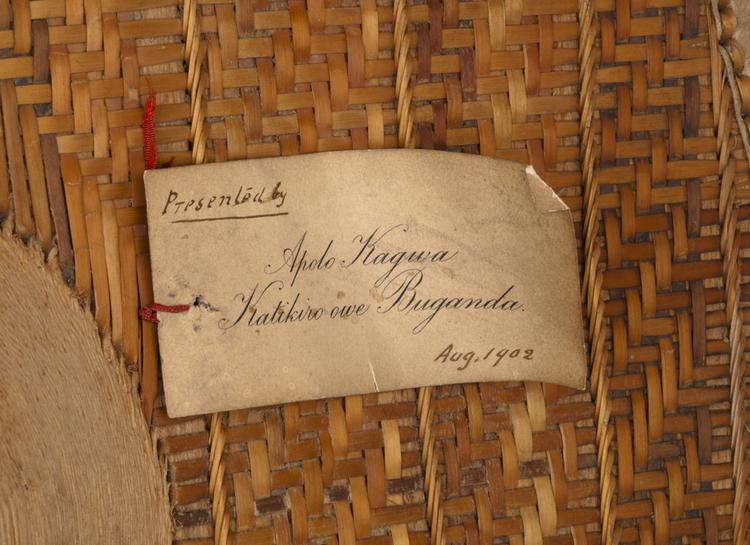 Presented by
Apolo Kagwa
Katikiro owe Buganda.
Aug. 1902